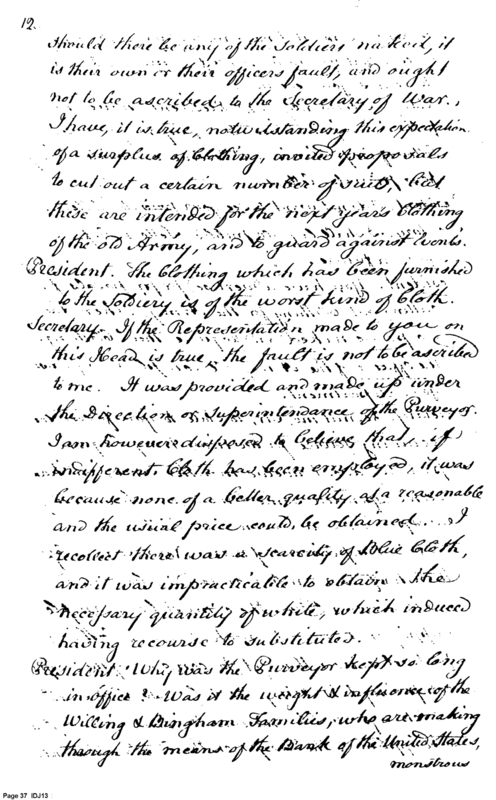 12.
should there be any of the Soldiers naked, it
is their own or their officers fault, and ought
not to be ascribed to the Secretary of War.
I have, it is true, notwithstanding this expectation
of a surplus of Clothing, invited proposals
to cut out a certain number of suits, but
these are intended for the next years Clothing
of the old Army, and to guard against events.
President. The Clothing which has been furnished
to the Soldiery is of the worst kind of Cloth.
Secretary. If the Representation made to you on
this Head is true, the fault is not to be ascribed
to me. It was provided and made up under
the Direction or Superintendance of the Purveyor.
I am however disposed to believe that, if
indifferent Cloth has been employed, it was
because none of a better quality at a reasonable
and the usual price could be obtained. I
recollect there was a scarcity of blue Cloth,
and it was impracticable to obtain the
necessary quantity of white, which induced
having recourse to substitutes.
President. Why was the Purveyor kept so long
in office? Was it the weight & influence of the
Willing & Bingham Families, who are making
through the means of the Bank of the United States,
monstrous
Page 37 IDJ13